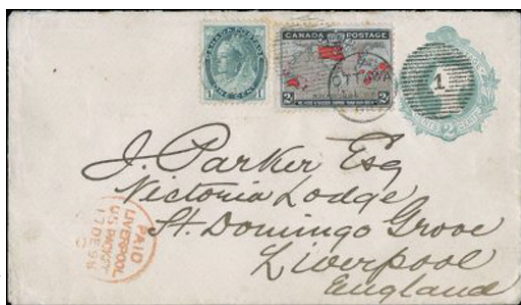 CANADA POSTAGE
1 ONE CENT 1
CANADA POSTAGE
2 2
OTTAWA
1
J. Parker Esq
Victoria Lodge
St. Domingo Grove
Liverpool
England
PAID
LIVERPOOL
US PACKET
17 DE 98